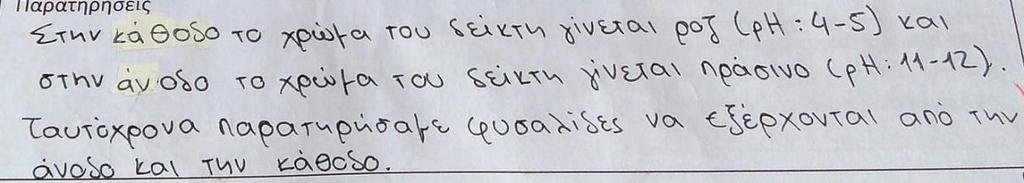 Παρατηρήσεις
Στην κάθοδο το χρώμα του δείκτη γίνεται ροζ (pH: 4-5) και
στην άνοδο το χρώμα του δείκτη γίνεται πράσινο (pH: 11-12).
Ταυτόχρονα παρατηρήσαμε φυσαλίδες να εξέρχονται από την
άνοδο και την κάθοδο.